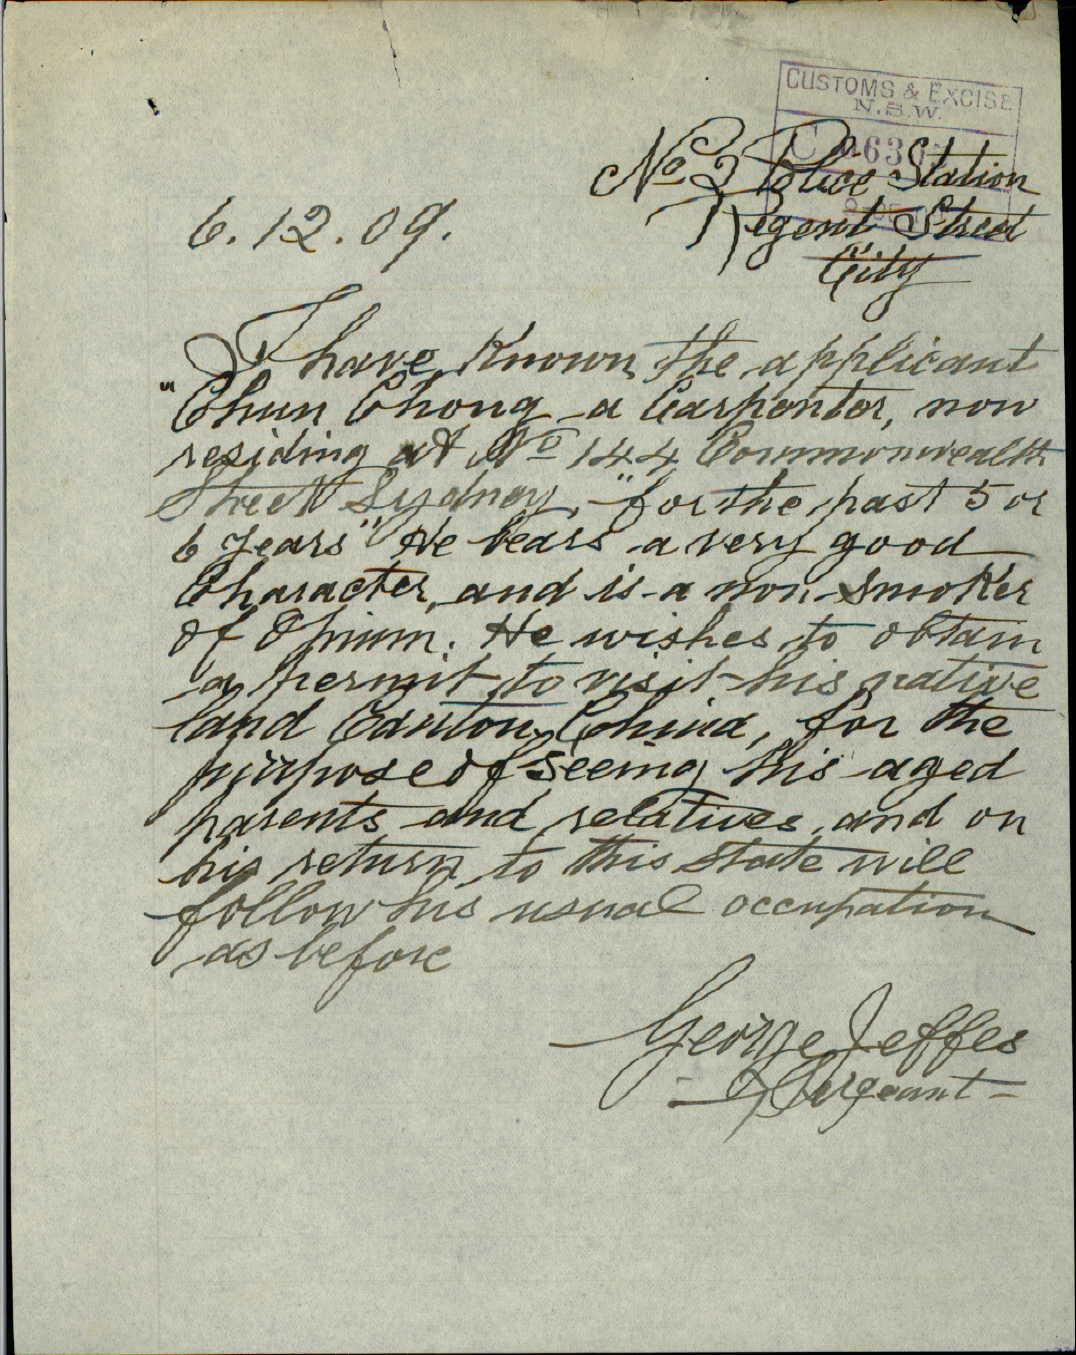 CUSTOMS & EXCISE
N.S.W.
No 2 Police Station
Regent Street
City
6.12.09.
I have known the applicant
"Chun Chong a Carpenter, now
residing at No 144 Commonwealth
Street Sydney, "for the past 5 or
6 years" He bears a very good
Character, and is a non-smoker
of Opium. He wishes to obtain
a permit to visit his native
land Canton, China, for the
purpose of seeing his aged
parents and relatives, and on
his return to this State will
follow his usual occupation
as before
George Jeffes
Sergeant